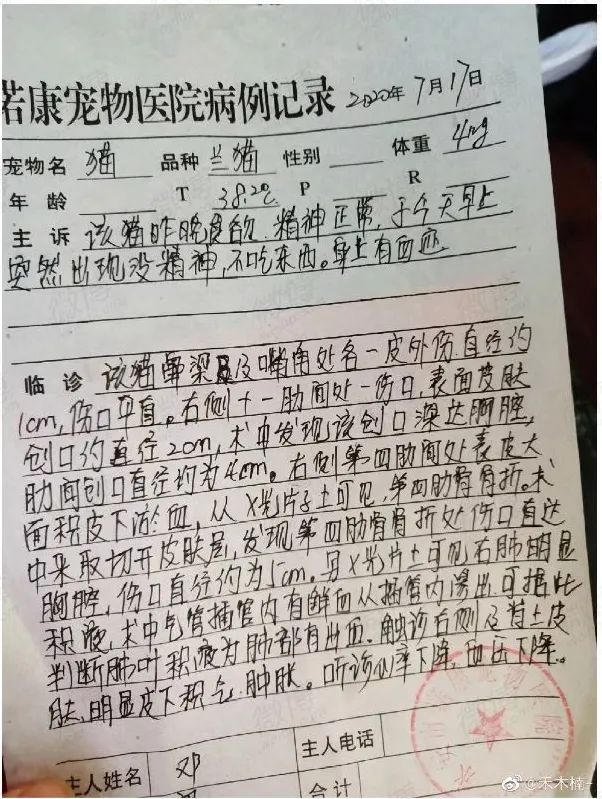 若康宠物医院病例记录 2020年7月17日
宠物名 猫 品种 兰猫 性别 体重
年龄 T 38.2℃ P R
主诉 该猫昨晚食欲.精神正常,于今天早上
突然出现没精神,不吃东西。身上有血迹
临诊 该猫鼻梁及嘴角处各一皮外伤.直径约
1cm,伤口平直。右侧十一肋间处一伤口,表面皮肤
创口约直径2cm,术中发现该创口深达胸腔,
肋间创口直径约为4cm。右侧第四肋间处表皮大
面积皮下淤血,从X光片子上可见,第四肋骨骨折。术
中采取切开皮肤层,发现第四肋骨骨折处伤口直达
胸腔,伤口直径约为5cm。另X光片上可见右肺明显
积液,术中气管插管内有鲜血从插管内涌出.可据此
判断肺叶积液为肺部有出血。触诊右侧及背上皮
肤,明显皮下积气.肿胀。听诊心率下降,血压下降。
主人姓名 邓 主人电话
合计
@禾木楠-